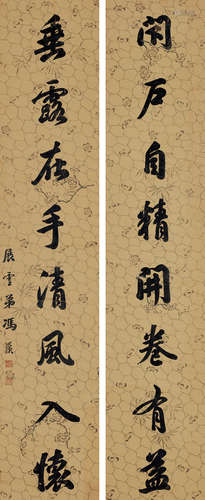 閉户自精開卷有益
垂露在手清風入懷
展雲弟馮譽